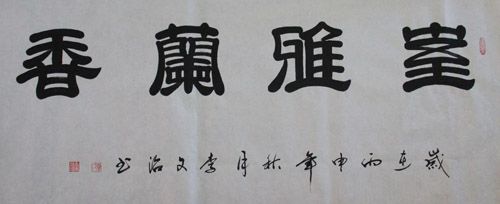 室雅蘭香
歲在丙申年秋月李文治书